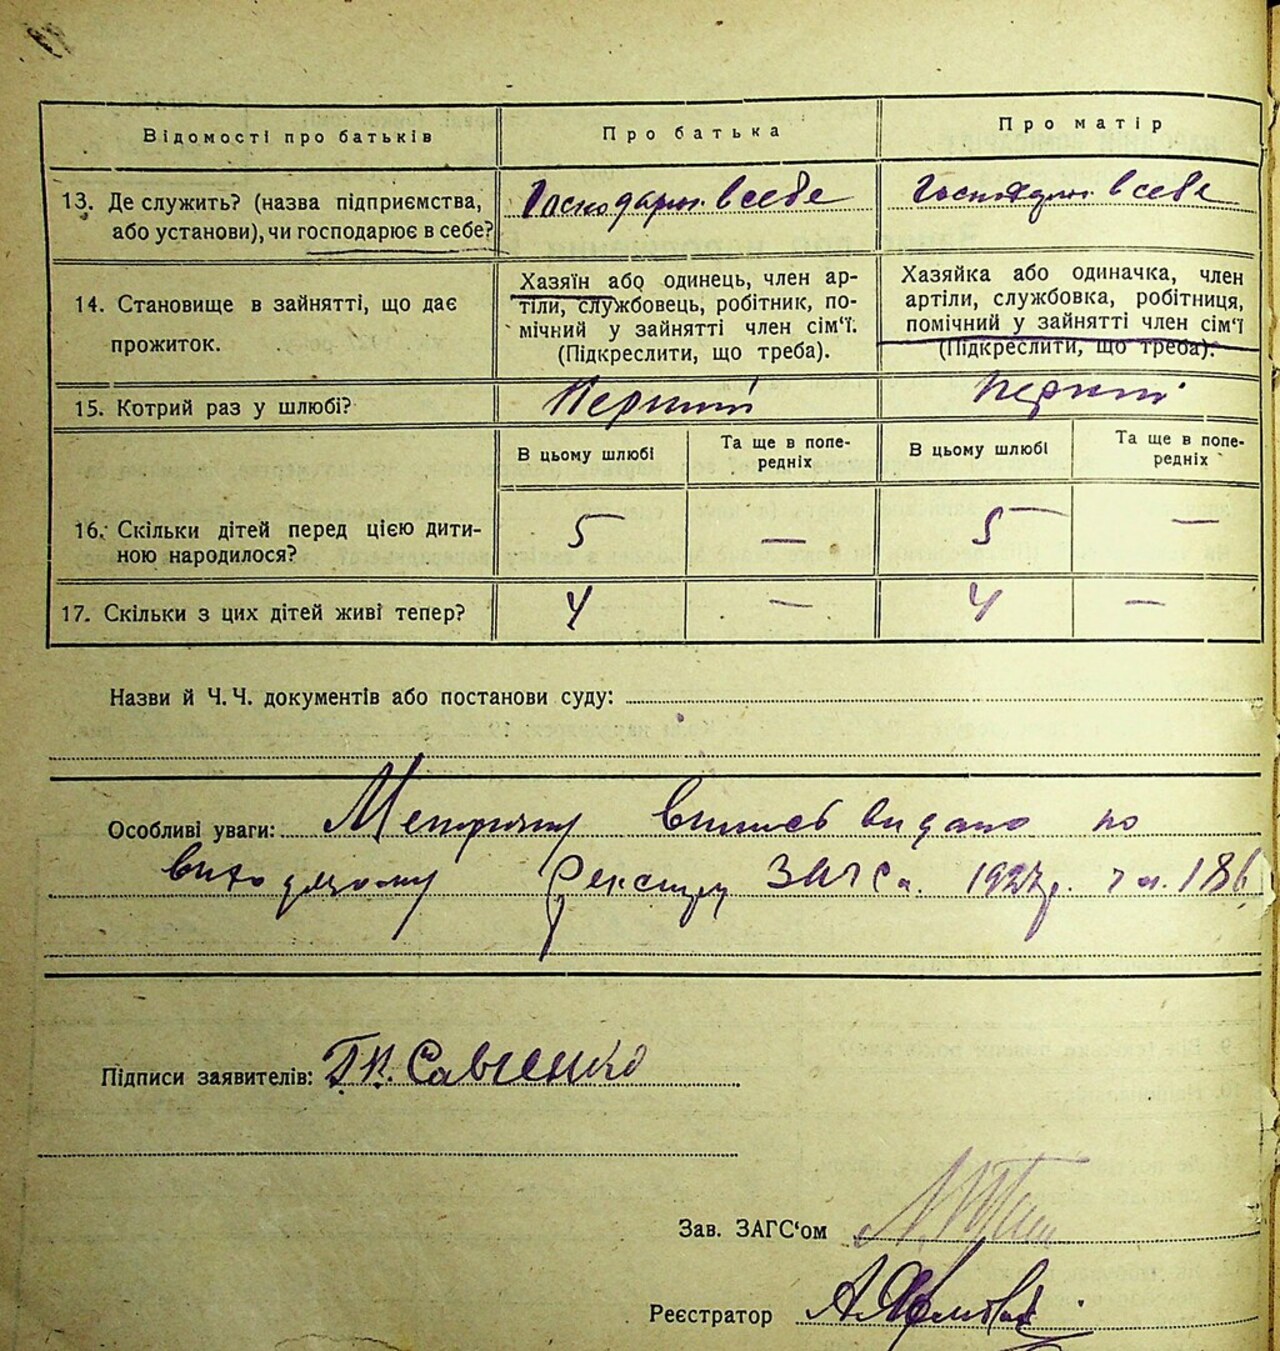 Відомості про батьків
Про батька
Про матір
13. Де служить? (назва підприємства,
або установи), чи господарює в себе?
Господарює в себе
Господарює в себе
14. Становище в зайнятті, що дає
прожиток.
Хазяїн або одинець, член ар-
тіли, службовець, робітник, по-
мічний у зайнятті член сім'ї.
(Підкреслити, що треба).
Хазяйка або одиначка, член
артіли, службовка, робітниця,
помічний у зайнятті член сім'ї
(Підкреслити, що треба).
15. Котрий раз у шлюбі?
Перший
Перший
В цьому шлюбі
Та ще в попе-
редніх
В цьому шлюбі
Та ще в попе-
редніх
16. Скільки дітей перед цією дити-
ною народилося?
5
—
5
—
17. Скільки з цих дітей живі тепер?
4
—
4
—
Назви й Ч. Ч. документів або постанови суду:
Особливі уваги: Метричну виписб видано по
входящому ЗАГСа. 1927р. 186
Підписи заявителів: Савченко
Зав. ЗАГС'ом
Реєстратор